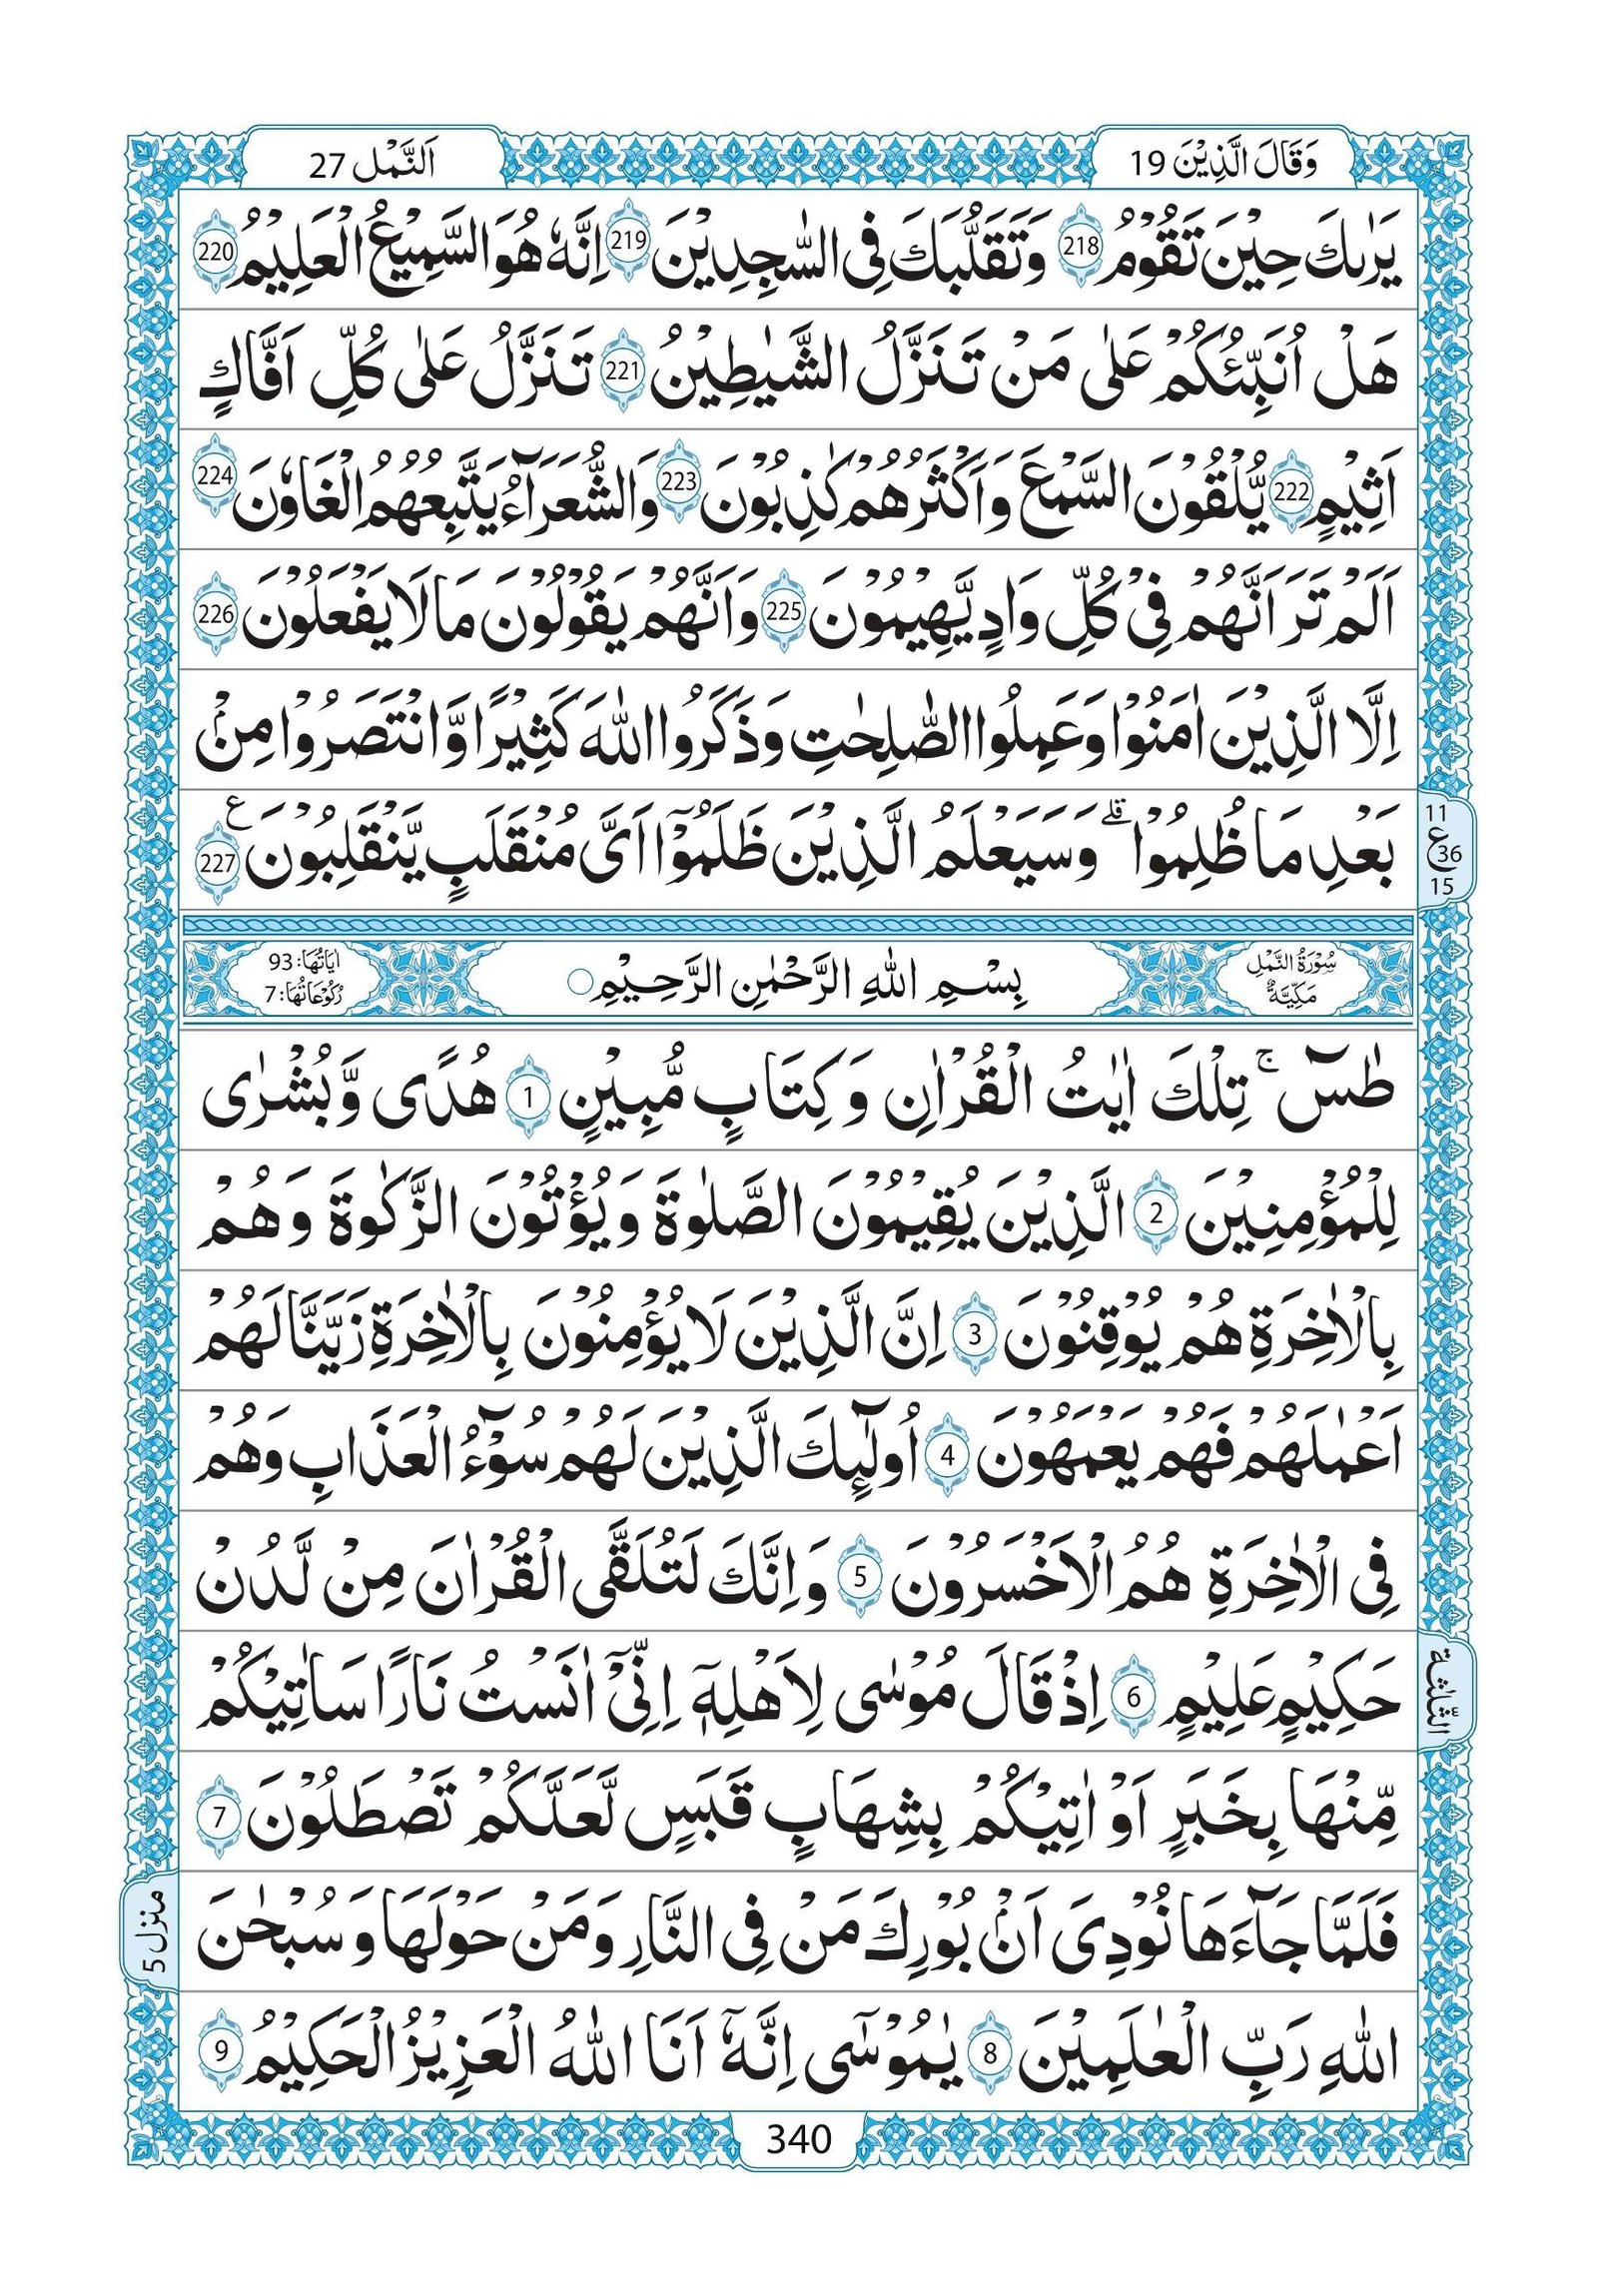 وَقَالَ الَّذِيْنَ 19
اَلنَّمْل 27
يَرٰىكَ حِيْنَ تَقُوْمُ 218 وَتَقَلُّبَكَ فِى السّٰجِدِيْنَ 219 اِنَّهٗ هُوَ السَّمِيْعُ الْعَلِيْمُ 220
هَلْ اُنَبِّئُكُمْ عَلٰى مَنْ تَنَزَّلُ الشَّيٰطِيْنُ 221 تَنَزَّلُ عَلٰى كُلِّ اَفَّاكٍ
اَثِيْمٍ 222 يُّلْقُوْنَ السَّمْعَ وَاَكْثَرُهُمْ كٰذِبُوْنَ 223 وَالشُّعَرَآءُ يَتَّبِعُهُمُ الْغَاوٗنَ 224
اَلَمْ تَرَ اَنَّهُمْ فِىْ كُلِّ وَادٍ يَّهِيْمُوْنَ 225 وَاَنَّهُمْ يَقُوْلُوْنَ مَا لَا يَفْعَلُوْنَ 226
اِلَّا الَّذِيْنَ اٰمَنُوْا وَعَمِلُوا الصّٰلِحٰتِ وَذَكَرُوا اللّٰهَ كَثِيْرًا وَّانْتَصَرُوْا مِنْۢ
بَعْدِ مَا ظُلِمُوْا ؕ وَسَيَعْلَمُ الَّذِيْنَ ظَلَمُوْۤا اَىَّ مُنْقَلَبٍ يَّنْقَلِبُوْنَ 227 ع
11
ع 36
15
سُوْرَةُ النَّمْلِ
مَكِّيَّةٌ
بِسْمِ اللّٰهِ الرَّحْمٰنِ الرَّحِيْمِ
اٰيَاتُهَا: 93
رُكُوْعَاتُهَا: 7
طٰسٓ ۚ تِلْكَ اٰيٰتُ الْقُرْاٰنِ وَكِتَابٍ مُّبِيْنٍ 1 هُدًى وَّبُشْرٰى
لِلْمُؤْمِنِيْنَ 2 الَّذِيْنَ يُقِيْمُوْنَ الصَّلٰوةَ وَيُؤْتُوْنَ الزَّكٰوةَ وَهُمْ
بِالْاٰخِرَةِ هُمْ يُوْقِنُوْنَ 3 اِنَّ الَّذِيْنَ لَا يُؤْمِنُوْنَ بِالْاٰخِرَةِ زَيَّنَّا لَهُمْ
اَعْمٰلَهُمْ فَهُمْ يَعْمَهُوْنَ 4 اُولٰٓئِكَ الَّذِيْنَ لَهُمْ سُوْٓءُ الْعَذَابِ وَهُمْ
فِى الْاٰخِرَةِ هُمُ الْاَخْسَرُوْنَ 5 وَاِنَّكَ لَتُلَقَّى الْقُرْاٰنَ مِنْ لَّدُنْ
حَكِيْمٍ عَلِيْمٍ 6 اِذْ قَالَ مُوْسٰى لِاَهْلِهٖۤ اِنِّىْۤ اٰنَسْتُ نَارًا سَاٰتِيْكُمْ
الثّلٰثة
مِّنْهَا بِخَبَرٍ اَوْ اٰتِيْكُمْ بِشِهَابٍ قَبَسٍ لَّعَلَّكُمْ تَصْطَلُوْنَ 7
فَلَمَّا جَآءَهَا نُوْدِىَ اَنْۢ بُوْرِكَ مَنْ فِى النَّارِ وَمَنْ حَوْلَهَا وَسُبْحٰنَ
منزل 5
اللّٰهِ رَبِّ الْعٰلَمِيْنَ 8 يٰمُوْسٰۤى اِنَّهٗۤ اَنَا اللّٰهُ الْعَزِيْزُ الْحَكِيْمُ 9
340